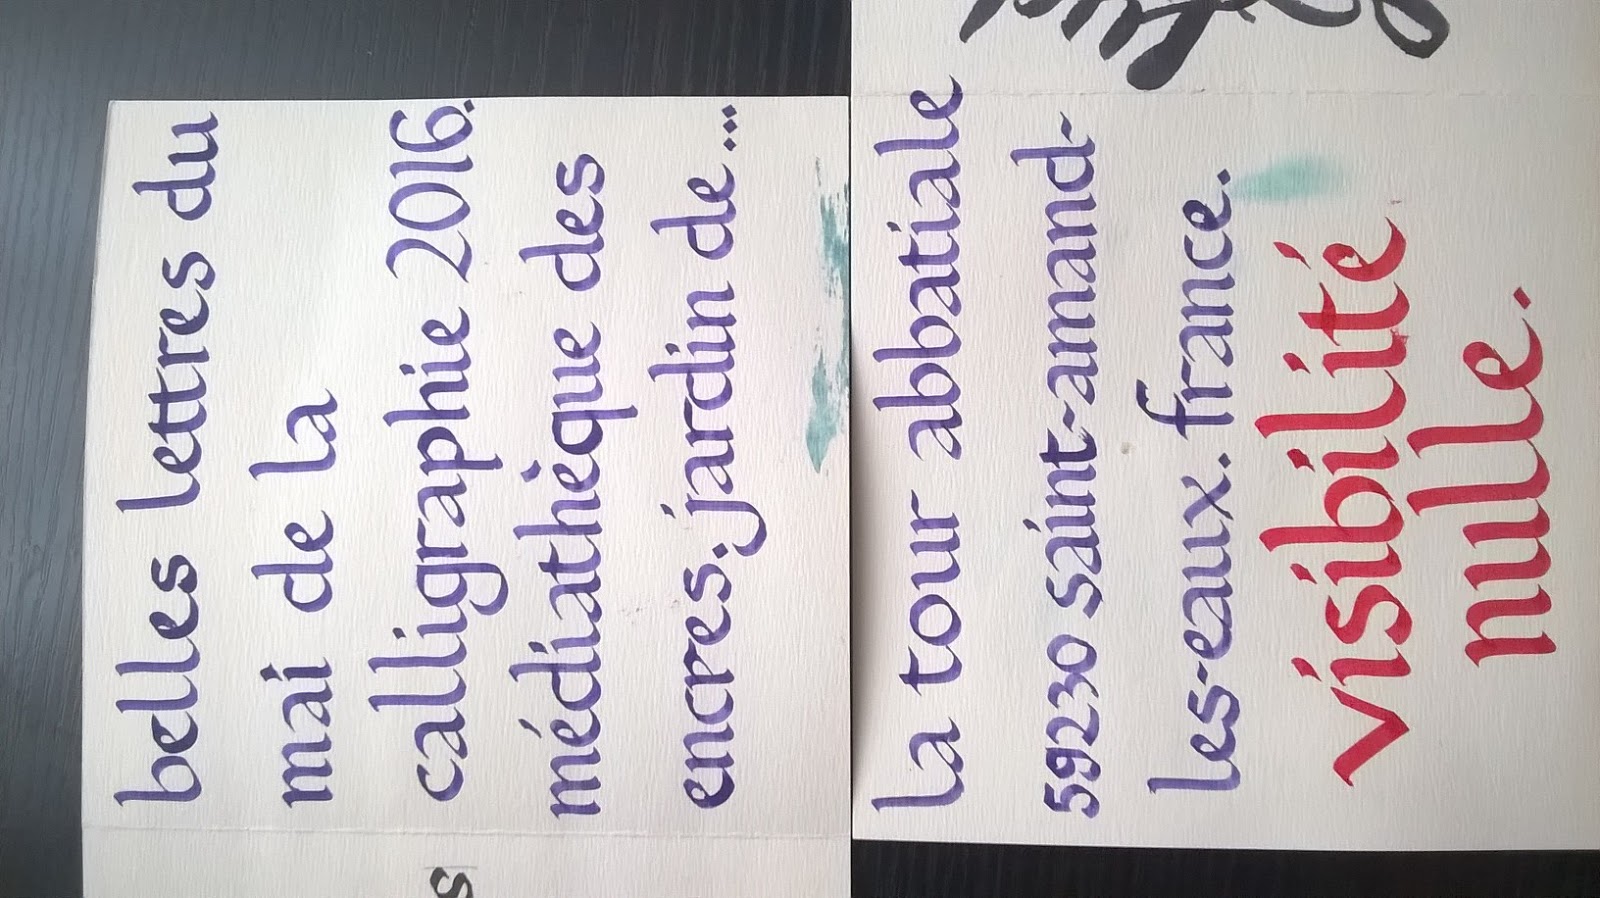 belles lettres du
mai de la
calligraphie 2016.
médiathèque des
encres. jardin de...
la tour abbatiale
59230 saint-amand-
les-eaux. france.
visibilité
nulle.
s